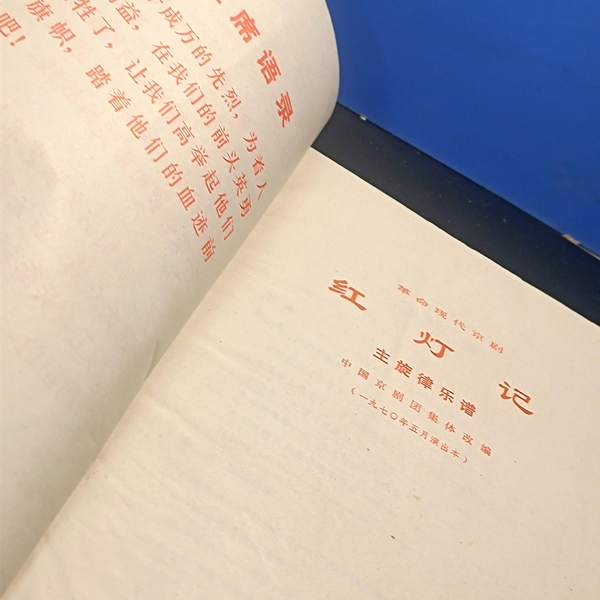 席语录
成万的先烈，为着人
益，在我们的前头英勇
牲了，让我们高举起他们
旗帜，踏着他们的血迹前
吧！
革命现代京剧
红灯记
主旋律乐谱
中国京剧团集体改编
（一九七〇年五月演出本）